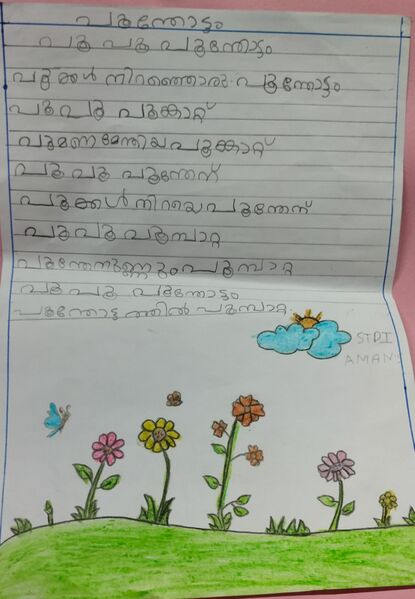 പൂന്തോട്ടം
പൂ പൂ പൂന്തോട്ടം
പൂക്കൾ നിറഞ്ഞൊരു പൂന്തോട്ടം
പൂ പൂ പൂങ്കാറ്റ്
പൂമണമേന്തിയ പൂങ്കാറ്റ്
പൂ പൂ പൂന്തേൻ
പൂക്കൾ നിറയെ പൂന്തേന്
പൂ പൂ പൂമ്പാറ്റ
പൂന്തേനുണ്ണും പൂമ്പാറ്റ
പൂ പൂ പൂന്തോട്ടം
പൂന്തോട്ടത്തിൽ പൂമ്പാറ്റ
STD I